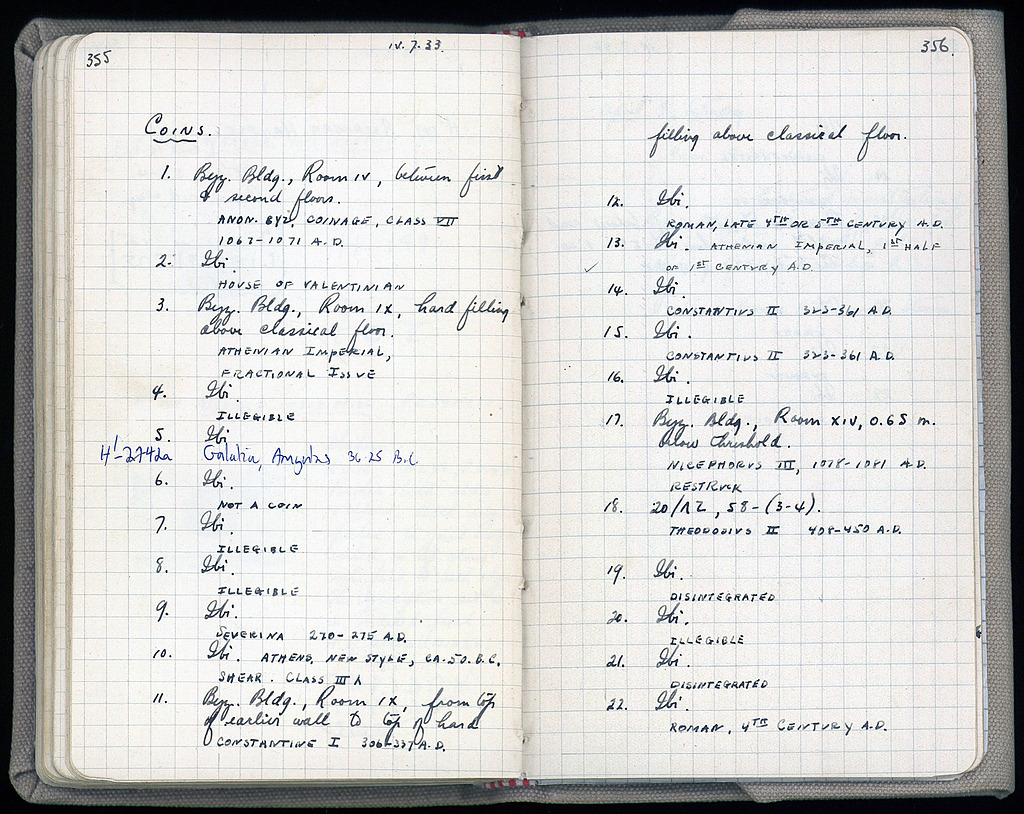 355
IV.7.33.
COINS.
1. Byz. Bldg., Room IV, between first
& second floors.
ANON. BYZ. COINAGE, CLASS VII
1067-1071 A.D.
2. Ibi.
HOUSE OF VALENTINIAN
3. Byz. Bldg., Room IX, hard filling
above classical floor.
ATHENIAN IMPERIAL,
FRACTIONAL ISSUE
4. Ibi.
ILLEGIBLE
5. Ibi
H'-2742a Galatia, Amyntas 36-25 B.C.
6. Ibi.
NOT A COIN
7. Ibi.
ILLEGIBLE
8. Ibi.
ILLEGIBLE
9. Ibi.
SEVERINA 270-275 A.D.
10. Ibi. ATHENS, NEW STYLE, CA. 50. B.C.
SHEAR. CLASS III
11. Byz. Bldg., Room IX, from top
of earlier wall to top of hard
CONSTANTINE I 306-337 A.D.
356.
filling above classical floor.
12. Ibi.
ROMAN, LATE 4TH OR 5TH CENTURY A.D.
13. Ibi. ATHENIAN IMPERIAL, 1ST HALF
✓ OF 1ST CENTURY A.D.
14. Ibi.
CONSTANTIUS II 323-361 A.D.
15. Ibi.
CONSTANTIUS II 323-361 A.D.
16. Ibi.
ILLEGIBLE
17. Byz. Bldg., Room XIV, 0.65 m.
below threshold.
NICEPHORUS III, 1078-1081 A.D.
RESTRUCK
18. 20/ΛΖ, 58-(3-4).
THEODOSIUS II 408-450 A.D.
19. Ibi.
DISINTEGRATED
20. Ibi.
ILLEGIBLE
21. Ibi.
DISINTEGRATED
22. Ibi.
ROMAN, 4TH CENTURY A.D.